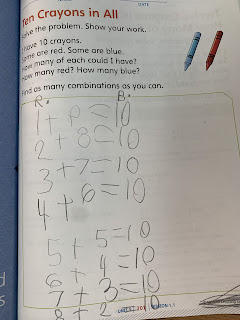 DATE
Ten Crayons in All
Solve the problem. Show your work.
I have 10 crayons.
Some are red. Some are blue.
How many of each could I have?
How many red? How many blue?
Find as many combinations as you can.
R. B.
1 + 9 = 10
2 + 8 = 10
3 + 7 = 10
4 + 6 = 10
5 + 5 = 10
6 + 4 = 10
7 + 3 = 10
8 + 2
UNIT SESSION 1.1